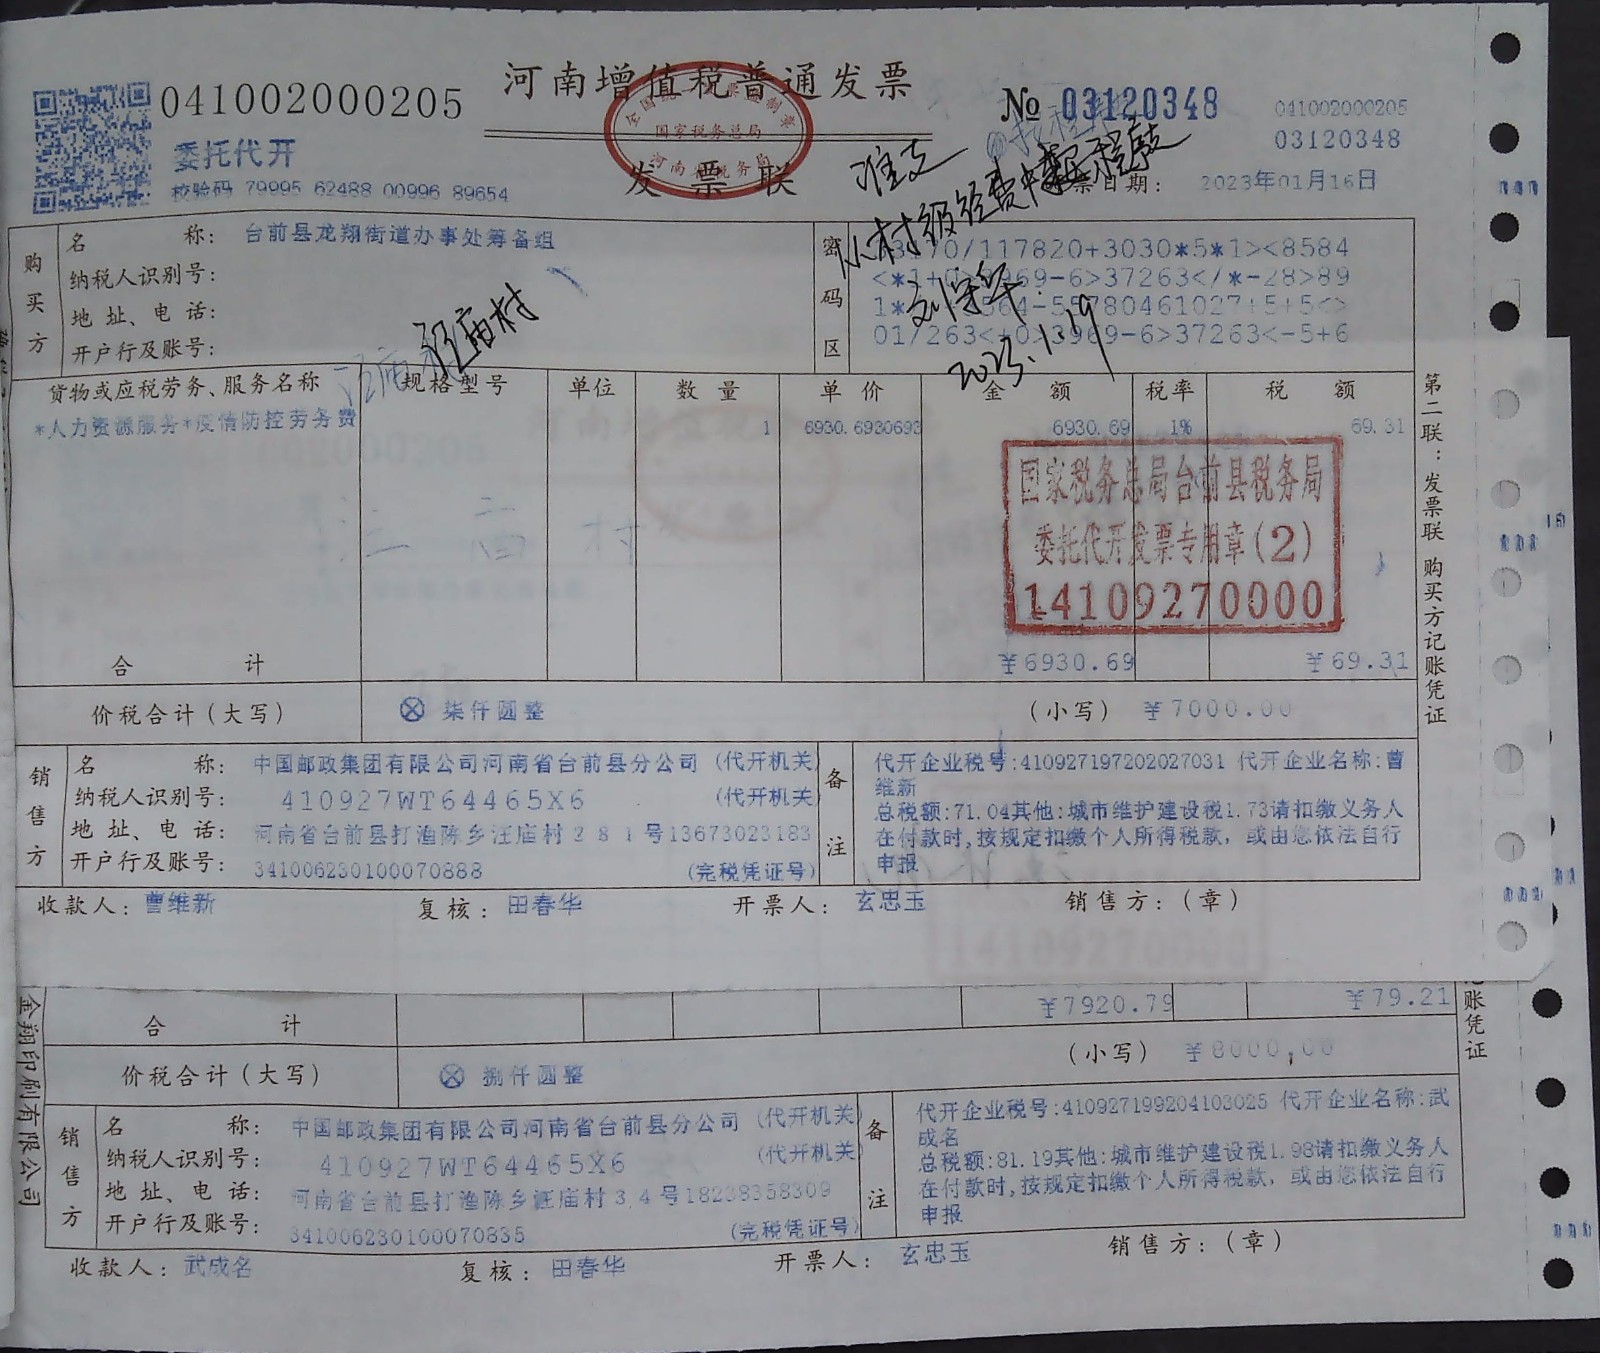 河南增值税普通发票
041002000205
№ 03120348
041002000205
03120348
委托代开
校验码 79995 62488 00996 89654
全国统一发票监制章
国家税务总局
河南省税务局
发票联
准支
票日期: 2023年01月16日
从村级经费中
刘学华
2023.1.19
汪庙村
购买方
名称: 台前县龙翔街道办事处筹备组
纳税人识别号:
地址、电话:
开户行及账号:
密码区
0/117820+3030*5*1><8584
969-6>37263</*-28>89
55780461027+5+5<>
01/263<+0>3969-6>37263<-5+6
货物或应税劳务、服务名称 规格型号 单位 数量 单价 金额 税率 税额
*人力资源服务*疫情防控劳务费 1 6930.6930693 6930.69 1% 69.31
国家税务总局台前县税务局
委托代开发票专用章(2)
14109270000
汪庙村
合计 ¥6930.69 ¥69.31
价税合计(大写) ⊗ 柒仟圆整 (小写) ¥7000.00
第二联:发票联 购买方记账凭证
销售方
名称: 中国邮政集团有限公司河南省台前县分公司 (代开机关)
纳税人识别号: 410927WT64465X6 (代开机关)
地址、电话: 河南省台前县打渔陈乡汪庙村281号13673023183
开户行及账号: 341006230100070888 (完税凭证号)
备注
代开企业税号:410927197202027031 代开企业名称:曹
维新
总税额:71.04其他:城市维护建设税1.73请扣缴义务人
在付款时,按规定扣缴个人所得税款, 或由您依法自行
申报
收款人: 曹维新 复核: 田春华 开票人: 玄忠玉 销售方:(章)
14109270000
合计 ¥7920.79 ¥79.21
价税合计(大写) ⊗ 捌仟圆整 (小写) ¥8000.00
账凭证
金翔印刷有限公司
销售方
名称: 中国邮政集团有限公司河南省台前县分公司 (代开机关)
纳税人识别号: 410927WT64465X6 (代开机关)
地址、电话: 河南省台前县打渔陈乡汪庙村34号18238358309
开户行及账号: 341006230100070835 (完税凭证号)
备注
代开企业税号:410927199204103025 代开企业名称:武
成名
总税额:81.19其他:城市维护建设税1.98请扣缴义务人
在付款时,按规定扣缴个人所得税款, 或由您依法自行
申报
收款人: 武成名 复核: 田春华 开票人: 玄忠玉 销售方:(章)